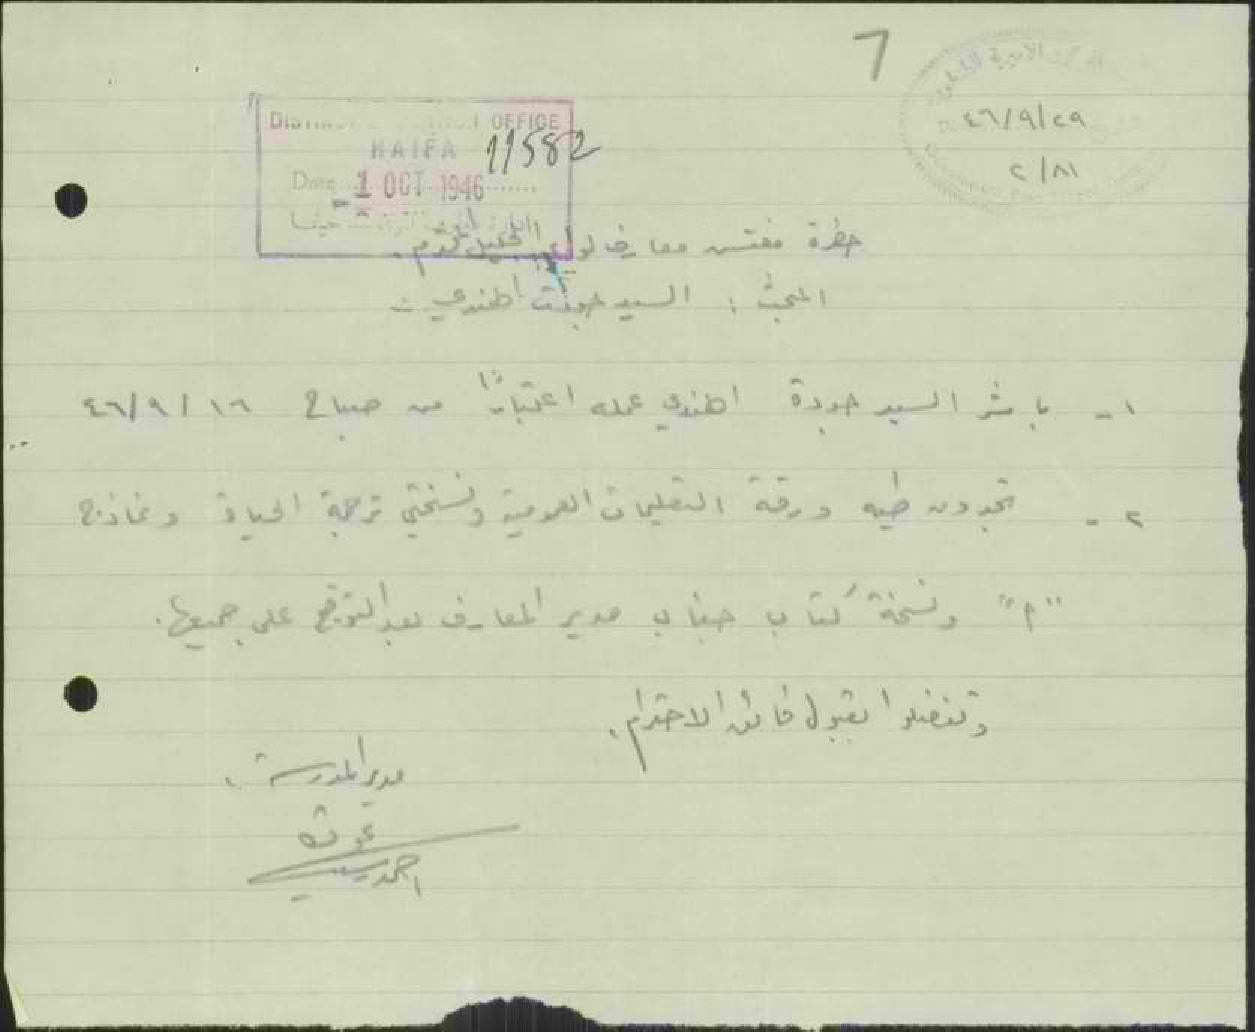 7
٤٦/٩/٢٩
٢/٨١
OFFICE
HAIFA
11582
Date 1 OCT 1946
حيفا
حضرة مفتش معارف لواء الجليل المحترم.
المبحث : السيد جودت الهندي
١- باشر السيد جودة الهندي عمله اعتبارًا من صباح ٤٦/٩/١٦
٢- تجدون طيه ورقة التعليمات العمومية ونسختي ترجمة الحياة ونماذج
"م" ونسخة كتاب جناب مدير المعارف بعد التوقيع على جميعها.
وتفضلوا بقبول فائق الاحترام.
مدير المدرسة
احمد